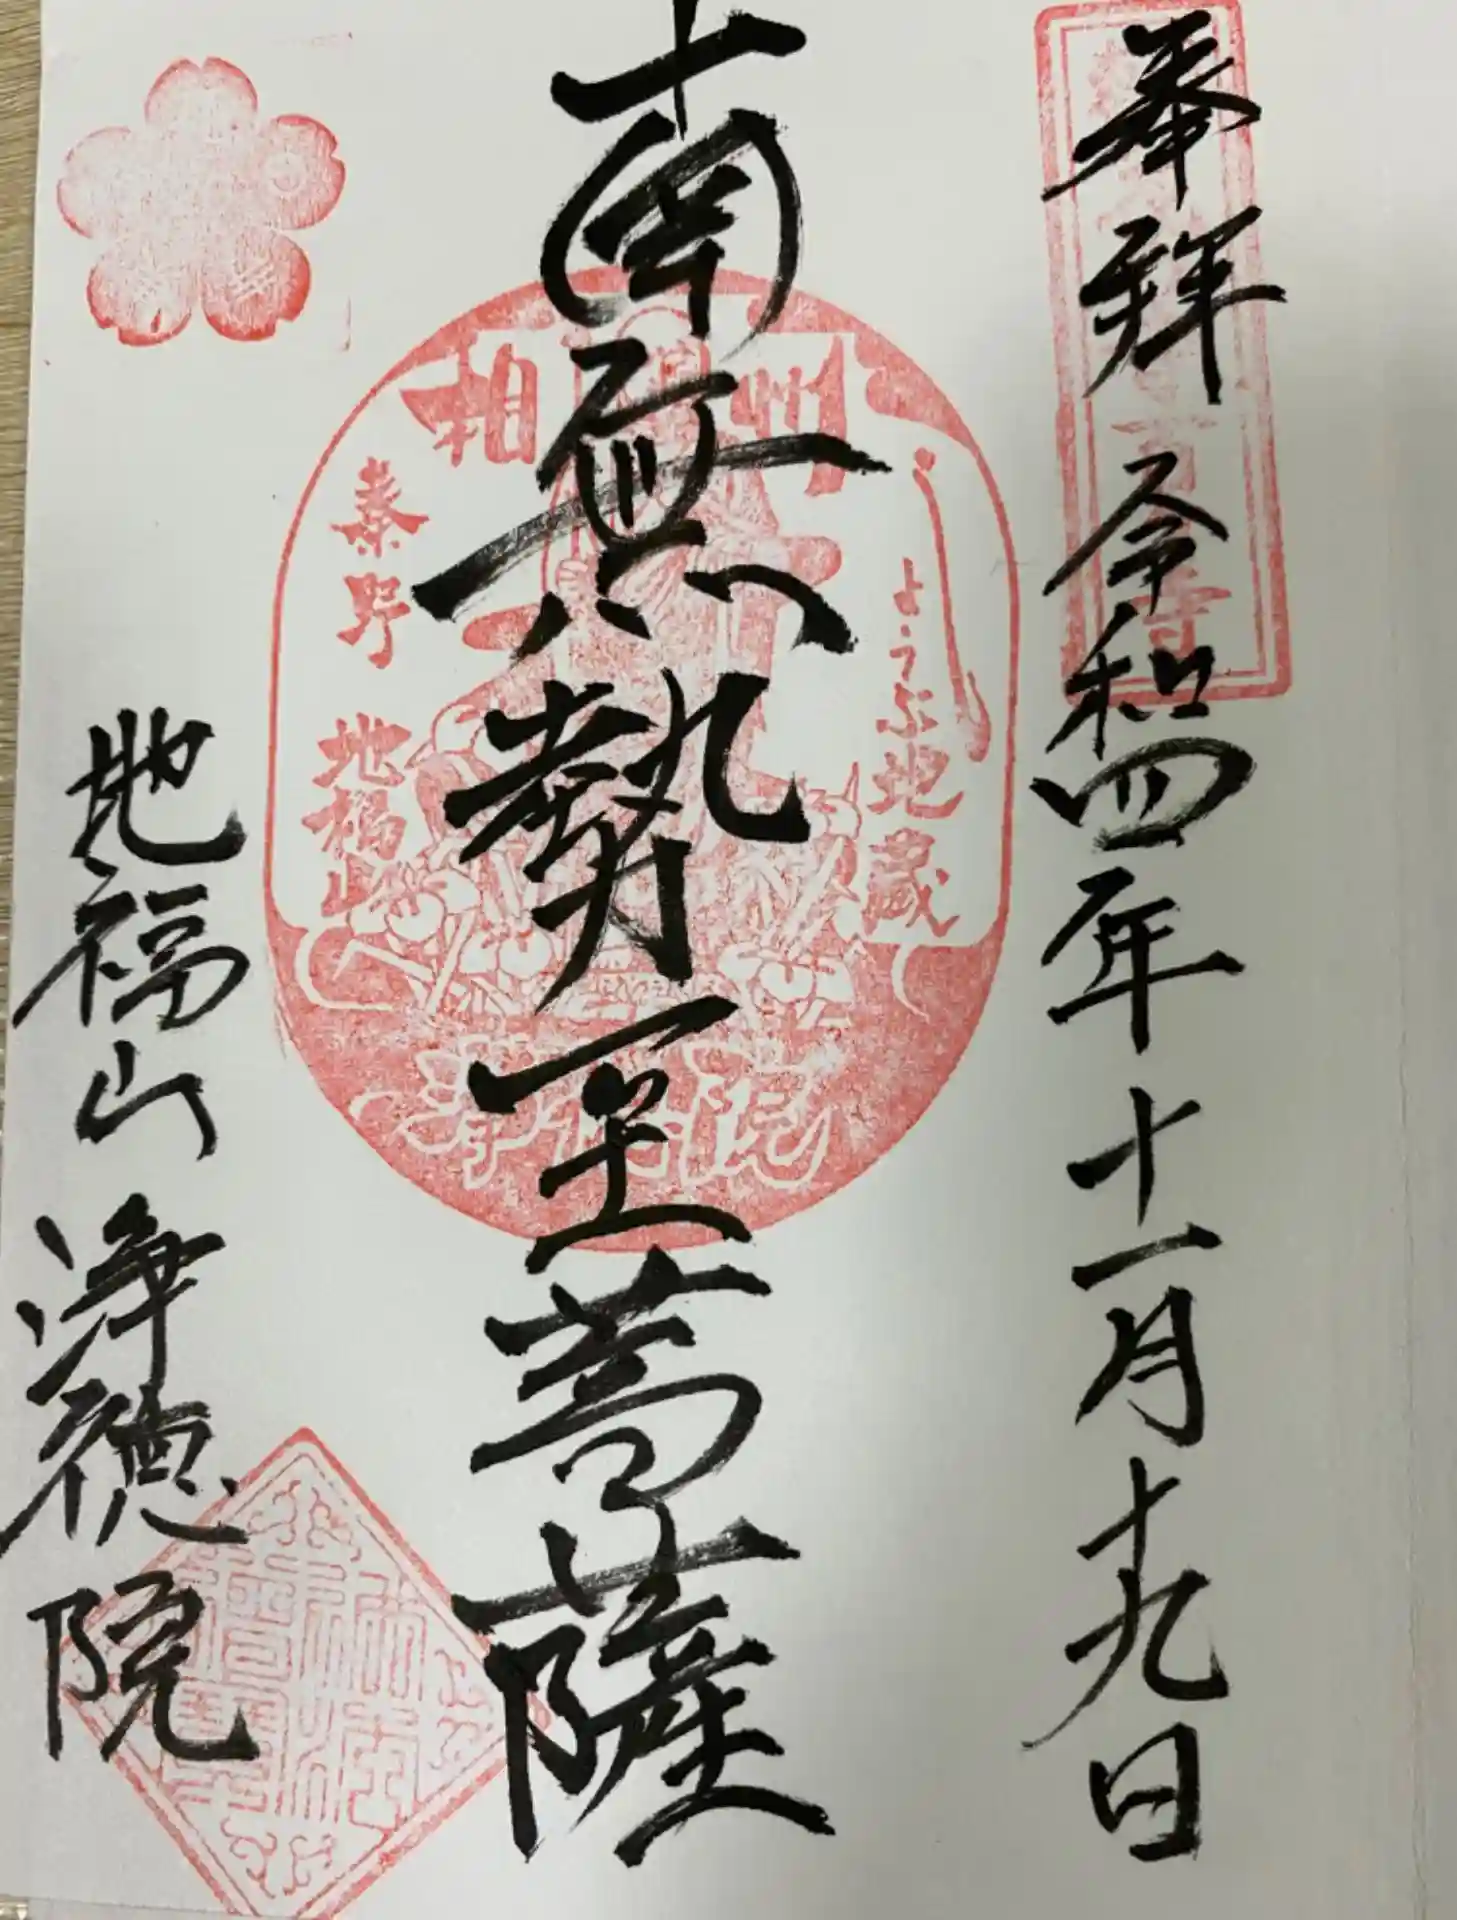 奉拜 令和四年十一月十九日
南無勢至菩薩
相州
ようぶ地蔵
秦野 地福山
淨德院
地福山 淨德院